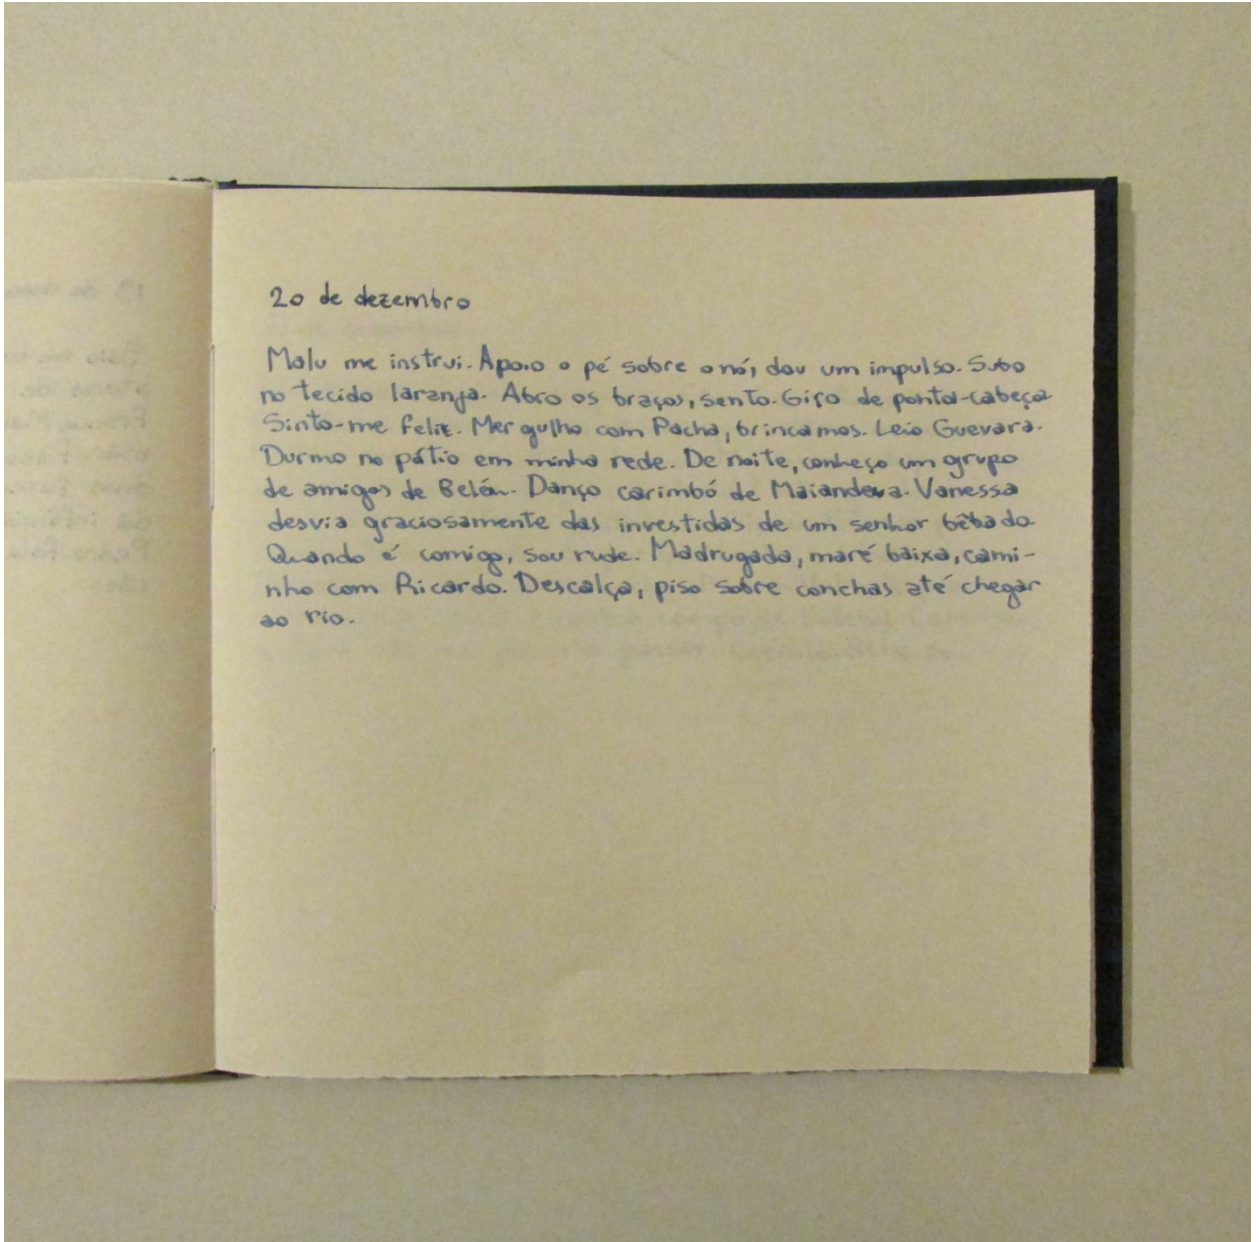 20 de dezembro
Malu me instrui. Apoio o pé sobre o nó, dou um impulso. Subo
no tecido laranja. Abro os braços, sento. Giro de ponta-cabeça
Sinto-me feliz. Mergulho com Pacha, brincamos. Leio Guevara.
Durmo no pátio em minha rede. De noite, conheço um grupo
de amigos de Belém. Danço carimbó de Maiandeua. Vanessa
desvia graciosamente das investidas de um senhor bêbado.
Quando é comigo, sou rude. Madrugada, maré baixa, cami-
nho com Ricardo. Descalça, piso sobre conchas até chegar
ao rio.